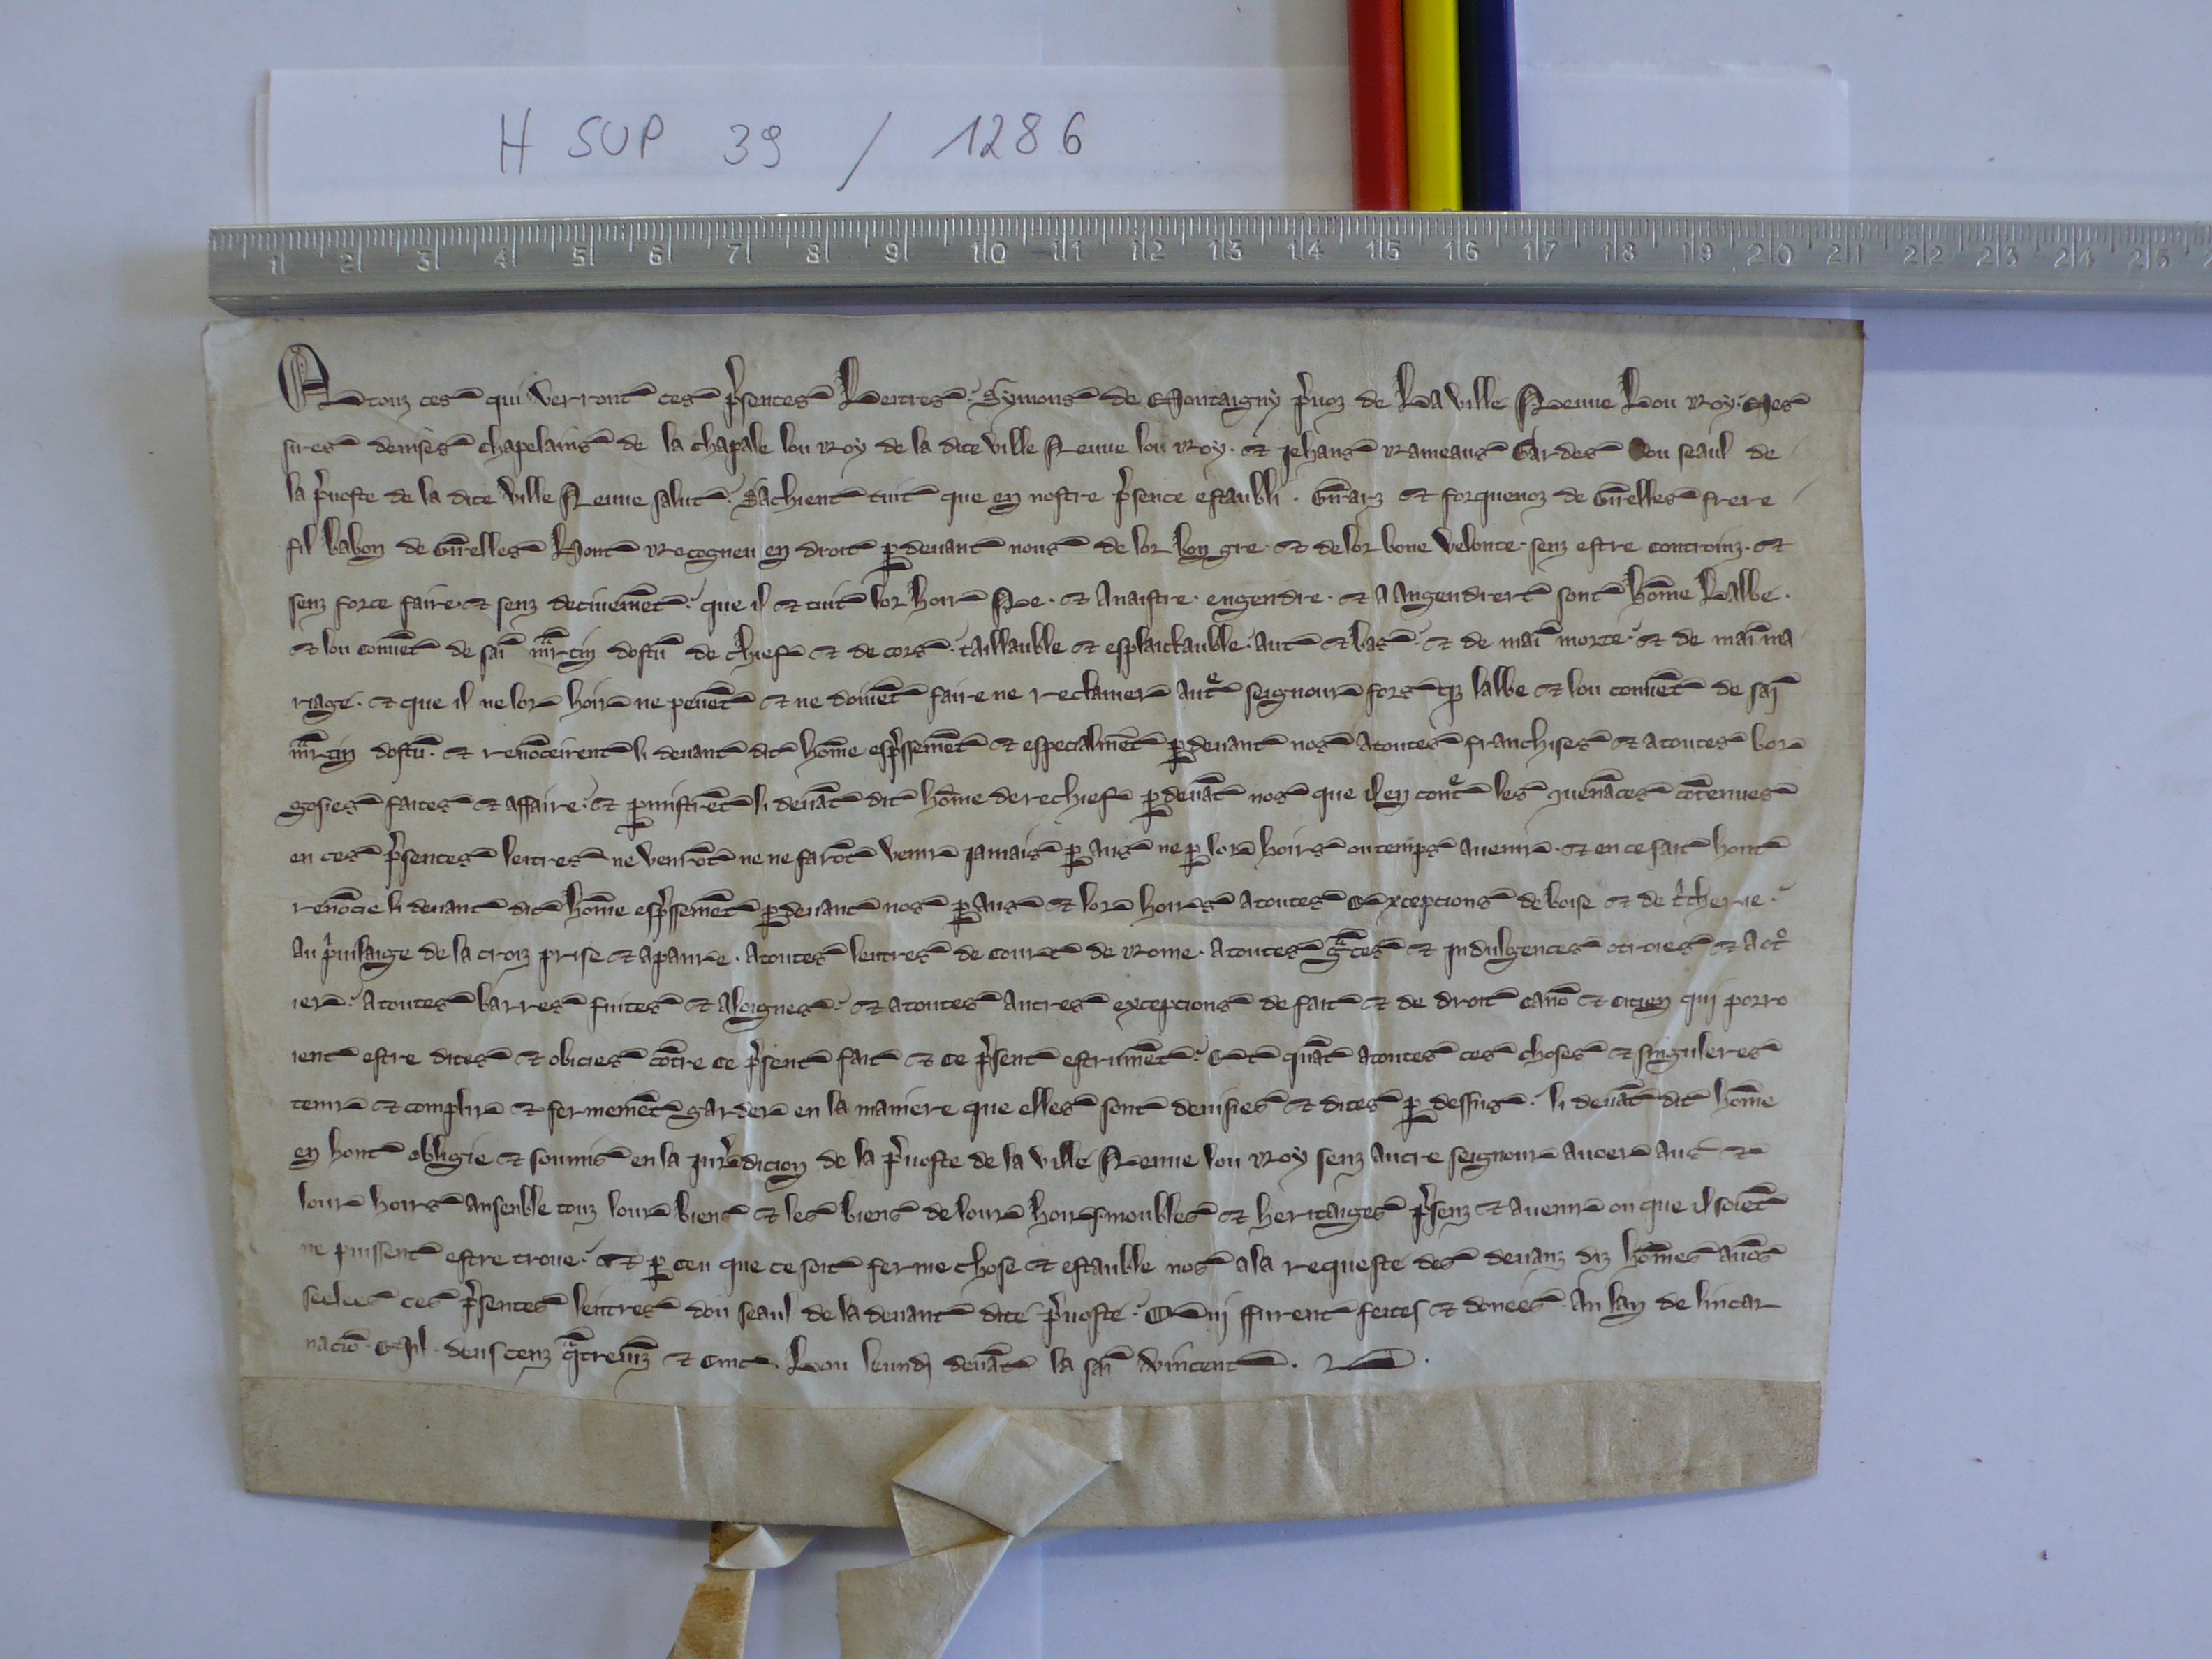 H SUP 39 / 1286
1 2 3 4 5 6 7 8 9 10 11 12 13 14 15 16 17 18 19 20 21 22 23 24 25
A touz ces qui verront ces p̾sentes Lettres. Symons de Montaigny p̾uoz de La Ville Neuue Lou Roy. Mes
sires denises chapelains de la chapele lou Roy de la dite Ville Neuue lou Roy. et Jehans Rameaus Gardes dou seaul de
la p̾uoste de la dite Ville Neuue salut. Sachient tuit que en nostre p̾sence estaubli. Gir̄arz et forquenoz de Gir̄elles frere
fil babon de Gir̄elles Hont Recogneu en droit ꝑ deuant nous de lor bon gre. et de lor bone Velonte. senz estre controinz. et
senz force faire. et senz deciuem̄et. que il et tuit lor hoir Ne. et A naistre. engendre. et A Angendrert sont hōme Labbe.
et lou conuēt de saī mr̄tin dostū de chief et de cors. taillauble et esplaictauble. aut et bas. et de maī morte. et de maī ma
riage. et que il ne lor hoir ne peuēt et ne doiuēt faire ne reclamer aut̾ seignour fors q̄ labbe et lou conuēt de saī
mr̄tin dostū. et renōceirent li deuant dit hōme esp̾ssemēt et especialmēt ꝑ deuant nos a toutes franchises et a toutes bor
gosies faites et affaire. et ꝑmistrēt li deuāt dit hōme derechief ꝑ deuāt nos que il en cont̾ les quenāces cōtenues
en ces p̾sentes lettres ne venrōt ne ne farōt venir jamais ꝑ aus ne ꝑ lor hoirs ou temps auenir. et en ce fait hont
renōcie li deuant dit hōme esp̾ssemēt ꝑ deuant nos ꝑ aus et lor hoirs a toutes Exceptions de boise et de t̾cherie.
au p̾uilaige de la croiz prise et apanre. A toutes lettres de court de Rome. A toutes gr̄ces et Indulgences otroies et a ot̾
ier. A toutes barres fuites et aloignes. et a toutes autres exceptions de fait et de droit canō et citien qui porro
ient estre dites et obicies cōtre ce p̾sent fait et ce p̾sent estrumēt. Et quāt a toutes ces choses et singuleres
tenir et complir et fermemēt garder en la maniere que elles sont deuisies et dites ꝑ dessus. li deuāt dit hōme
en hont obligie et soumis en la Jur̾dicion de la p̾uoste de la Ville Neuue lou Roy senz autre seignour auoer aus et
lour hoirs ansenble touz lour biens et les biens de lour hoirs moubles et heritaiges p̾senz et auenir ou que il soiēt
ne puissent estre troue. et ꝑ ceu que ce soit ferme chose et estauble nos a la requeste des deuanz diz hōmes auōs
seelees ces p̾sentes lettres dou seaul de la deuant dite p̾uoste. Qui ffurent feites et donees. An lan de lincar
nacio. Mil. deus cenz q̄treuinz et cinc. Lou leundi deuāt la saī Vincent.